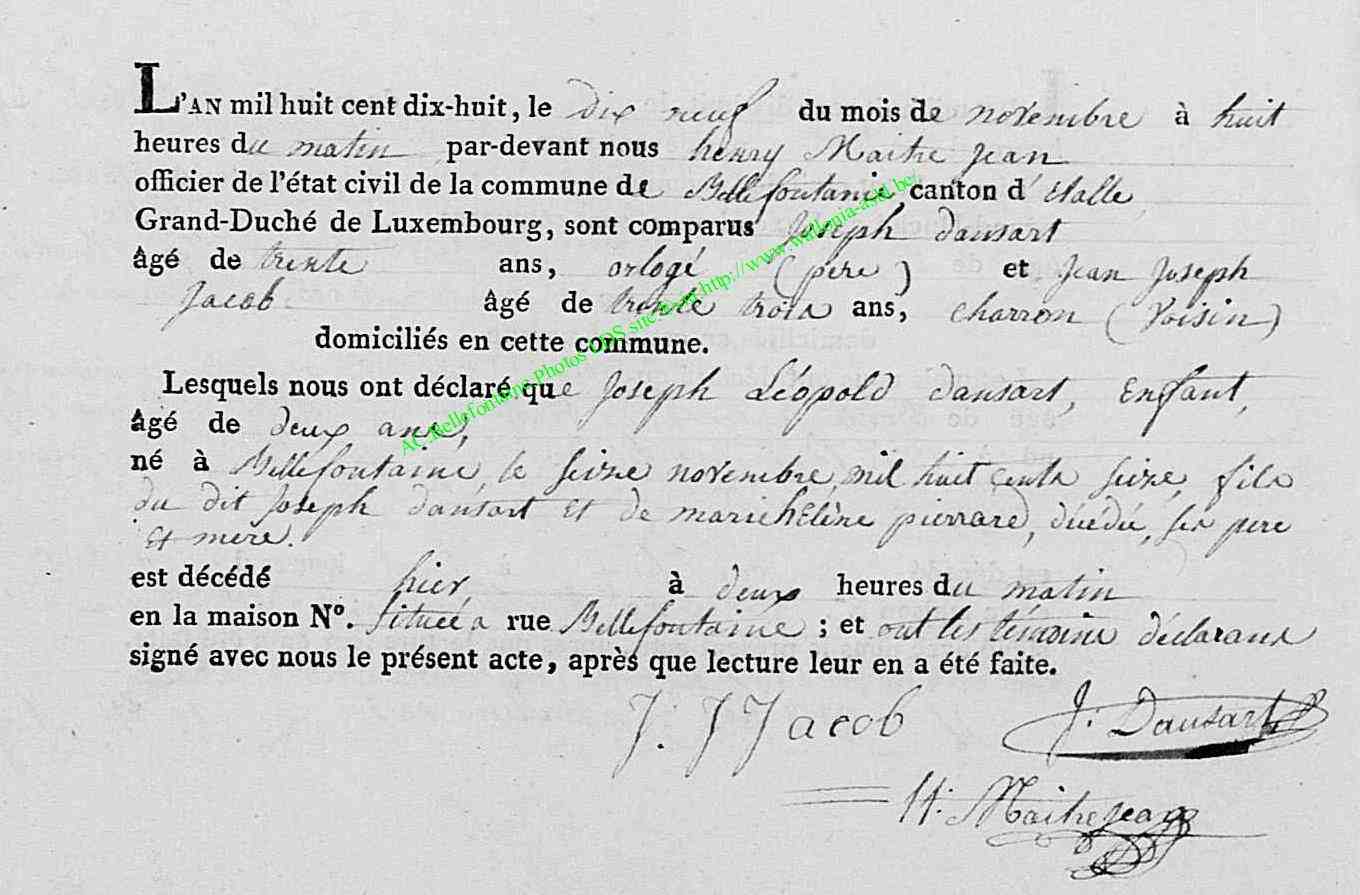 L'AN mil huit cent dix-huit, le dix neuf du mois de novembre à huit
heures du matin par-devant nous henry Maitre jean
officier de l'état civil de la commune de Bellefontaine canton d'étalle
Grand-Duché de Luxembourg, sont comparus Joseph dausart
âgé de trente ans, orlogé (père) et Jean Joseph
Jacob âgé de trente trois ans, charron (Voisin)
domiciliés en cette commune.
Lesquels nous ont déclaré que Joseph Léopold dausart, Enfant,
âgé de deux ans,
né à Bellefontaine, le seize novembre mil huit cents seize, fils
du dit Joseph dausart et de marie hélène pierrard, ses pere
et mere.
est décédé hier, à deux heures du matin
en la maison N°. située a rue Bellefontaine ; et ont les témoins déclarans
signé avec nous le présent acte, après que lecture leur en a été faite.
J. J Jacob J. Dausart
H. Maitrejean
AC Bellefontaine Photos LDS site from http://www.wallonia-asbl.be/